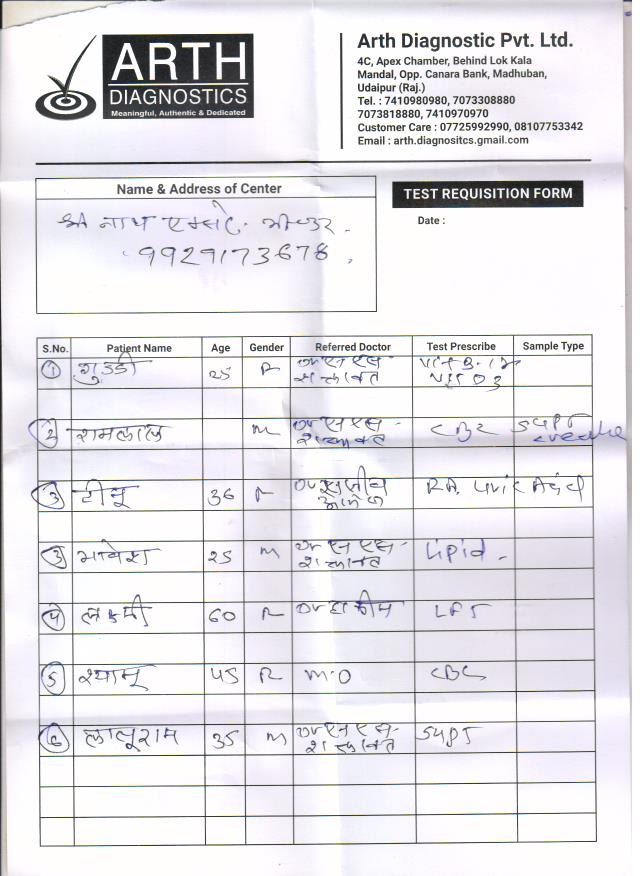 ARTH
DIAGNOSTICS
Meaningful, Authentic & Dedicated
Arth Diagnostic Pvt. Ltd.
4C, Apex Chamber, Behind Lok Kala
Mandal, Opp. Canara Bank, Madhuban,
Udaipur (Raj.)
Tel. : 7410980980, 7073308880
7073818880, 7410970970
Customer Care : 07725992990, 08107753342
Email : arth.diagnositcs.gmail.com
Name & Address of Center
TEST REQUISITION FORM
Date :
श्री नाथ
9929173678
S.No. Patient Name Age Gender Referred Doctor Test Prescribe Sample Type
1 गुड्डी 25 F एस एस Vit B-12
Vit D3
2 रामलाल M एस एस CBC SGPT
3 टीनू 36 F RA, Uric Acid
3 भावेश 25 M एस एस Lipid
4 लक्ष्मी 60 F LFT
5 श्यामू 45 F M.O CBC
6 लालूराम 35 M एस एस SGPT